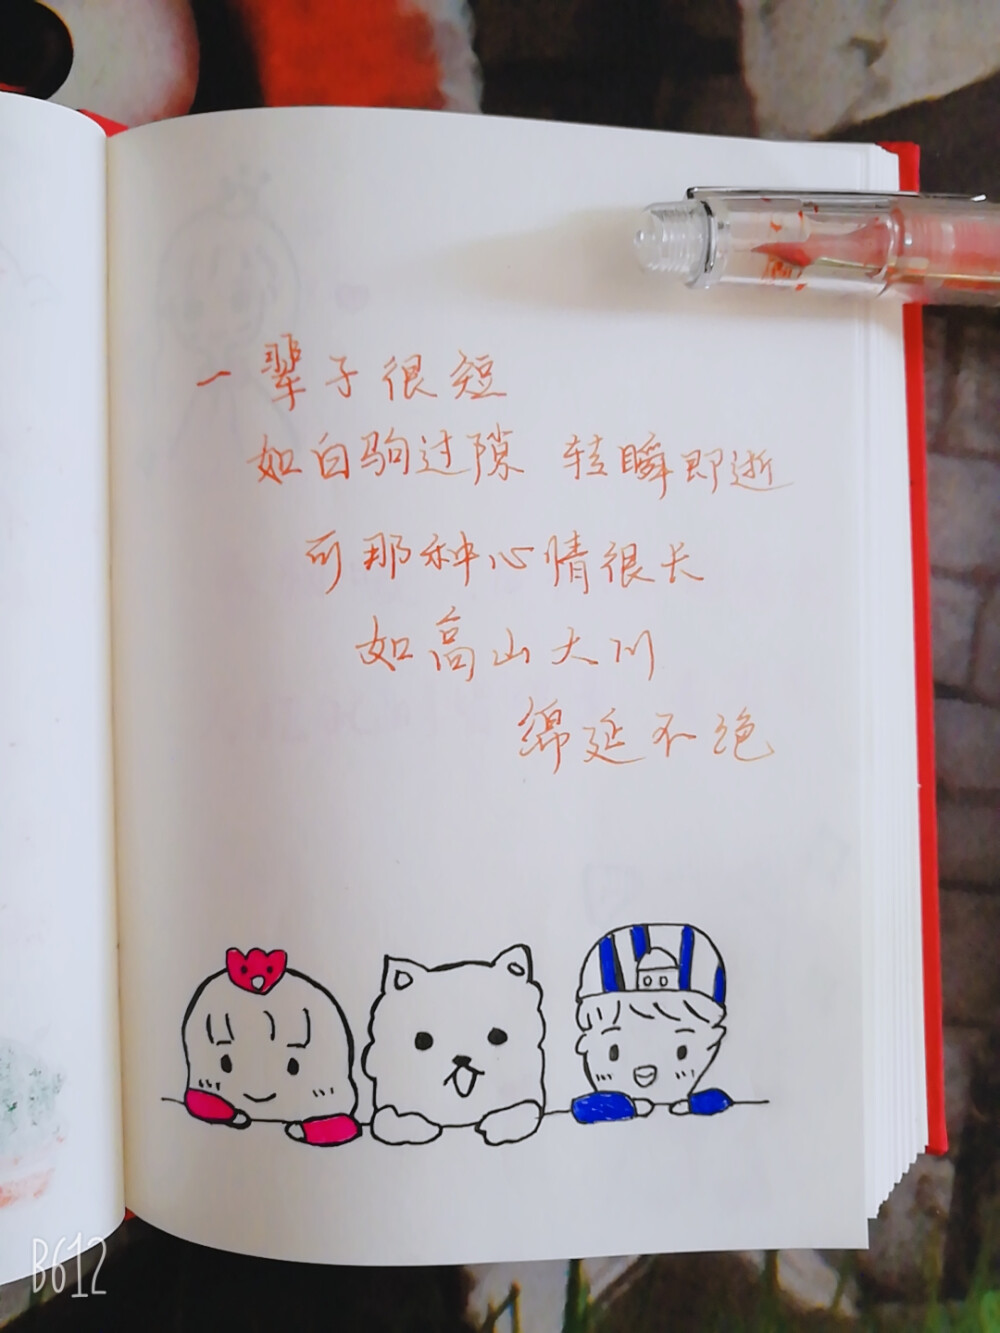 一辈子很短
如白驹过隙 转瞬即逝
可那种心情很长
如高山大川
绵延不绝
B612